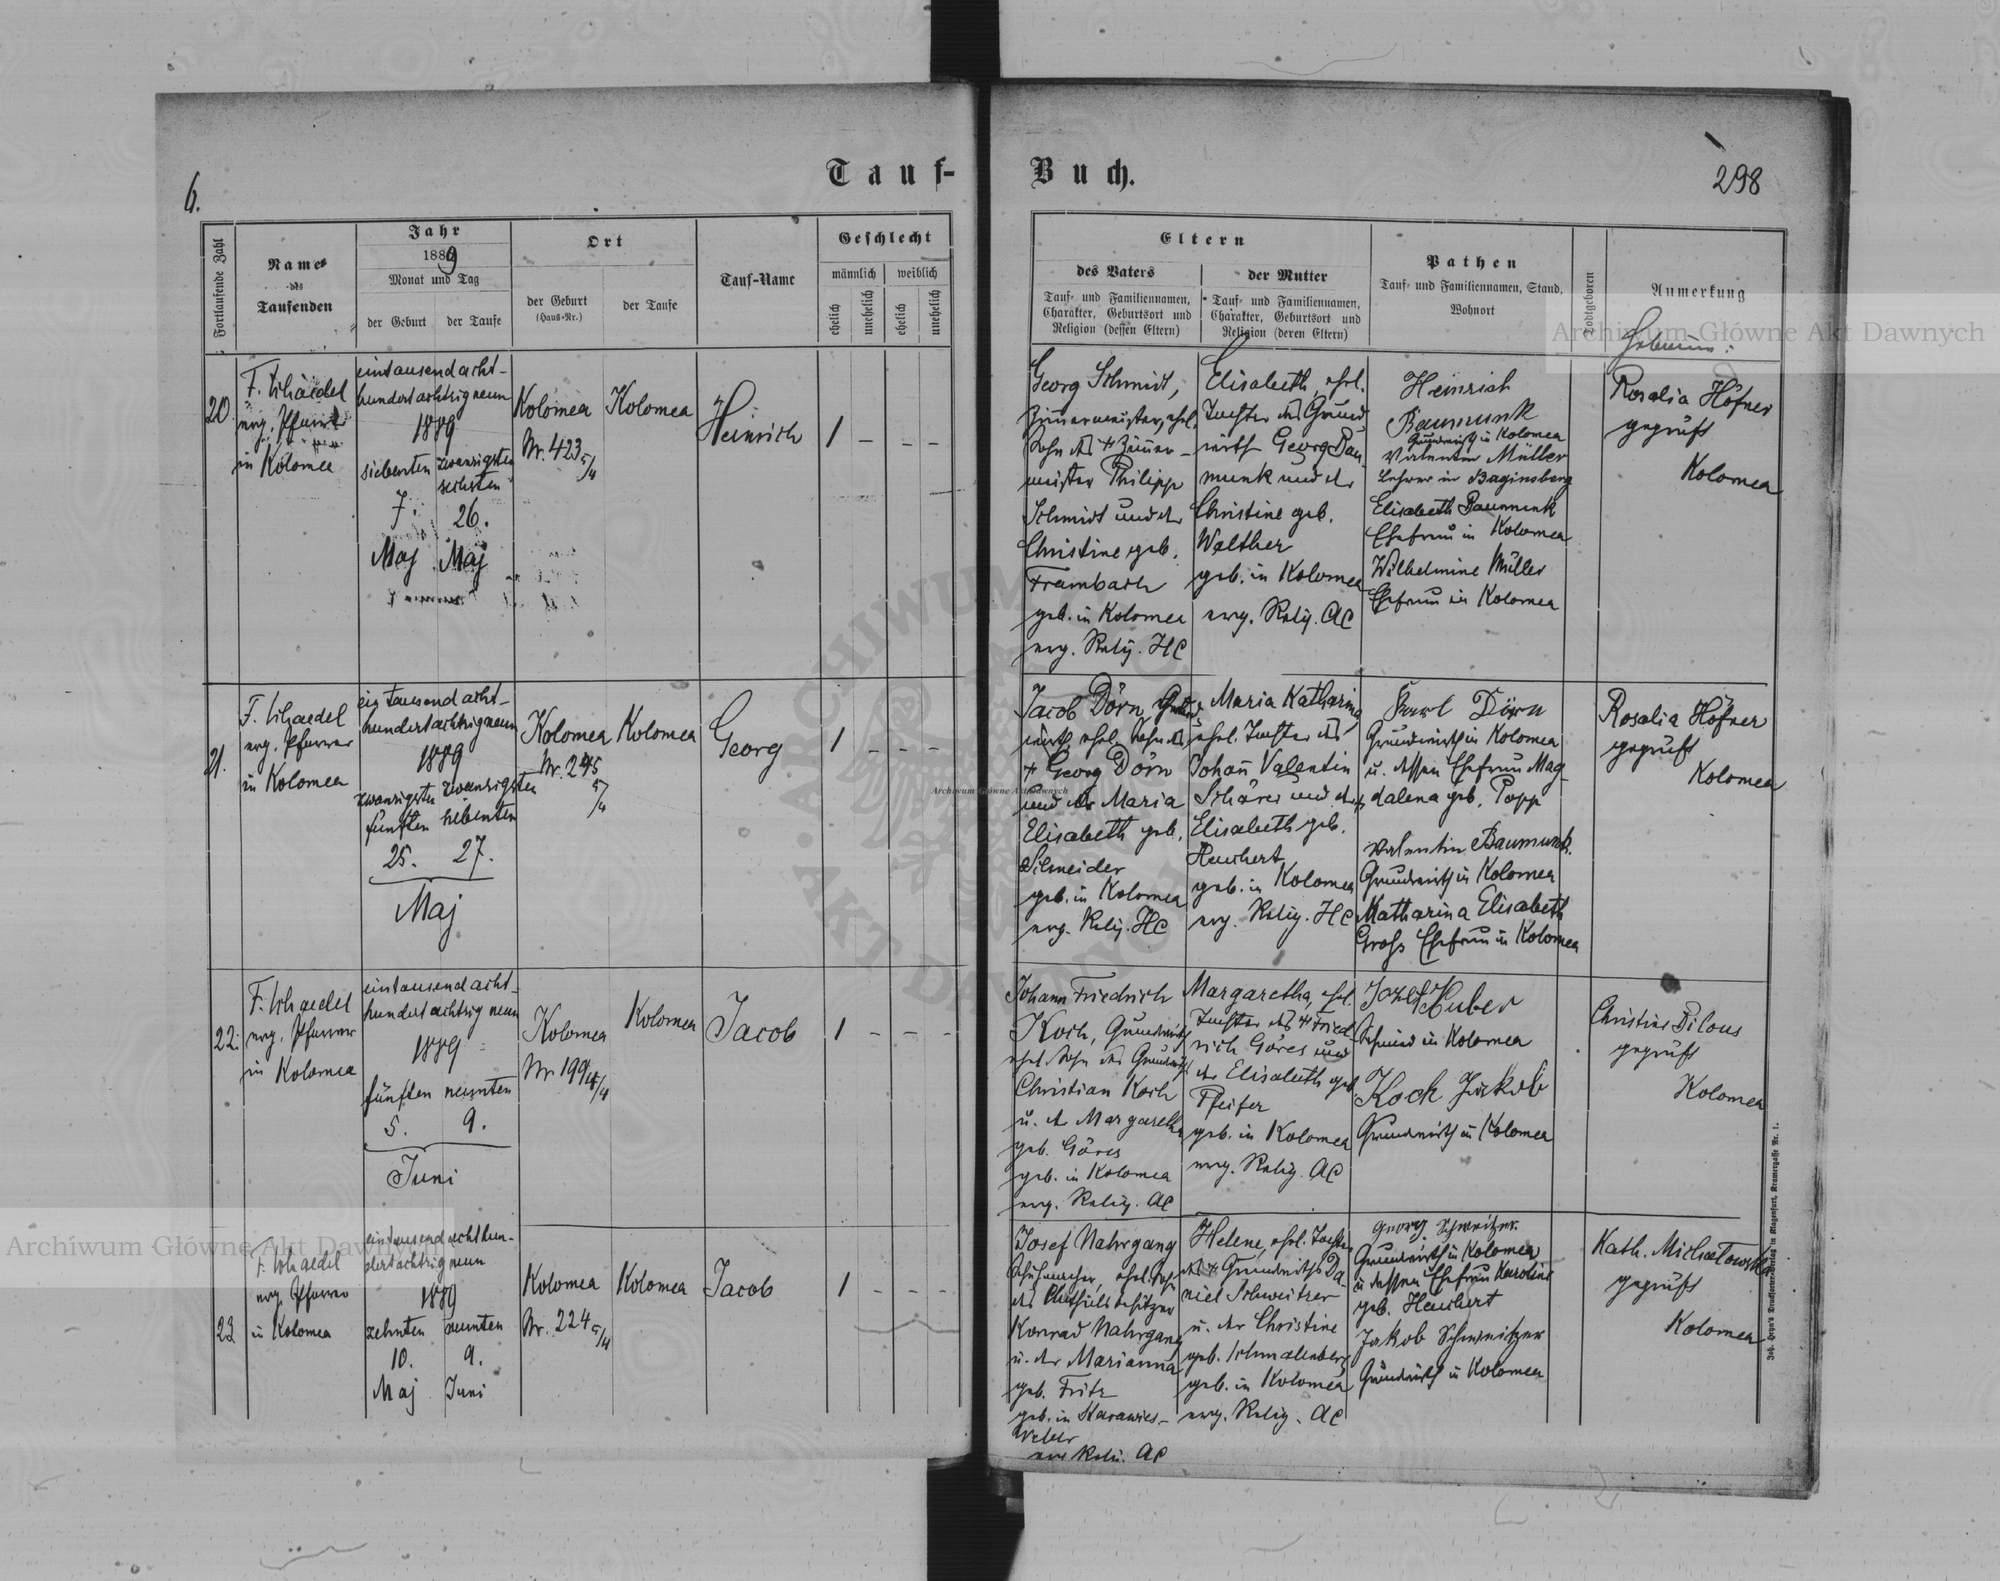 6.
Tauf-
Buch.
298
Fortlaufende Zahl
Name
des
Taufenden
Jahr
1889
Monat und Tag
der Geburt
der Taufe
Ort
der Geburt
(Haus-Nr.)
der Taufe
Tauf-Name
Geschlecht
männlich
weiblich
ehelich
unehelich
ehelich
unehelich
Eltern
des Vaters
Tauf- und Familiennamen,
Charakter, Geburtsort und
Religion (dessen Eltern)
der Mutter
Tauf- und Familiennamen,
Charakter, Geburtsort und
Religion (deren Eltern)
Pathen
Tauf- und Familiennamen, Stand,
Wohnort
Todtgeboren
Anmerkung
20.
F. Schaedel
evg. Pfarrer
in Kolomea
eintausendacht-
hundertachtzigneun
1889
siebenten zwanzigsten
sechsten
7. 26.
Maj Maj
Kolomea
Nr. 423 5/4
Kolomea
Heinrich
1 - - -
Georg Schmidt,
Zimmermeister, ehel.
Sohn des + Zimmer-
meister Philipp
Schmidt und der
Christine geb.
Frambach
geb. in Kolomea
evg. Relig. HC
Elisabeth, ehel.
Tochter des Grund
wirth Georg Bau-
munk und der
Christine geb.
Walther
geb. in Kolomea
evg. Relig. AC
Heinrich
Baumunk
Grundwirth in Kolomea
Valentin Müller
Lehrer in Baginsberg
Elisabeth Baumunk
Ehefrau in Kolomea
Wilhelmine Müller
Ehefrau in Kolomea
Hebamme:
Rosalia Höfner
geprüft
Kolomea
21.
F. Schaedel
evg. Pfarrer
in Kolomea
eintausendacht-
hundertachtzigneun
1889
zwanzigsten zwanzigsten
fünften siebenten
25. 27.
Maj
Kolomea
Nr. 245 5/4
Kolomea
Georg
1 - - -
Jacob Dörn, Grund
wirth, ehel. Sohn des
+ Georg Dörn
und der Maria
Elisabeth geb.
Schneider
geb. in Kolomea
evg. Relig. HC
Maria Katharina
ehel. Tochter des
Johann Valentin
Schärer und der
Elisabeth geb.
Heuchert
geb. in Kolomea
evg. Relig. HC
Karl Dörn
Grundwirth in Kolomea
u. dessen Ehefrau Mag-
dalena geb. Popp
Valentin Baumunk.
Grundwirth in Kolomea
Katharina Elisabeth
Gross Ehefrau in Kolomea
Rosalia Höfner
geprüft
Kolomea
22.
F. Schaedel
evg. Pfarrer
in Kolomea
eintausendacht-
hundertachtzigneun
1889
fünften neunten
5. 9.
Juni
Kolomea
Nr 199
Kolomea
Jacob
1 - - -
Johann Friedrich
Koch, Grundwirth
ehel. Sohn des Grundwirth
Christian Koch
u. der Margaretha
geb. Göres
geb. in Kolomea
evg. Relig. AC
Margaretha, ehel.
Tochter des + Fried-
rich Göres und
der Elisabeth geb.
Pfeifer
geb. in Kolomea
evg. Relig. AC
Josef Huber
Schmied in Kolomea
Koch Jakob
Grundwirth in Kolomea
Christine Pilous
geprüft
Kolomea
23
F. Schaedel
evg. Pfarrer
in Kolomea
eintausendachthun-
dertachtzigneun
1889
zehnten neunten
10. 9.
Maj Juni
Kolomea
Nr. 224 5/4
Kolomea
Jacob
1 - - -
Josef Nahrgang
Schuhmacher, ehel. Sohn
des Antheilsbesitzer
Konrad Nahrgang
u. der Marianna
geb. Fritz
geb. in
evg. Relig. AC
Helene, ehel. Tochter
des + Grundwirths Da
niel Schweitzer
u. der Christine
geb. Schmalenberg
geb. in Kolomea
evg. Relig. AC
Georg Schweitzer
Grundwirth in Kolomea
u. dessen Ehefrau Karoline
geb. Heuchert
Jakob Schweitzer
Grundwirth in Kolomea
Kath. Michałowska
geprüft
Kolomea
Joh. Heyn's Druckforten-Verlag in Klagenfurt, Kramergasse Nr. 1.
Archiwum Główne Akt Dawnych
Archiwum Główne Akt Dawnych
Archiwum Główne Akt Dawnych
ARCHIWUM
AKT DAWNYCH